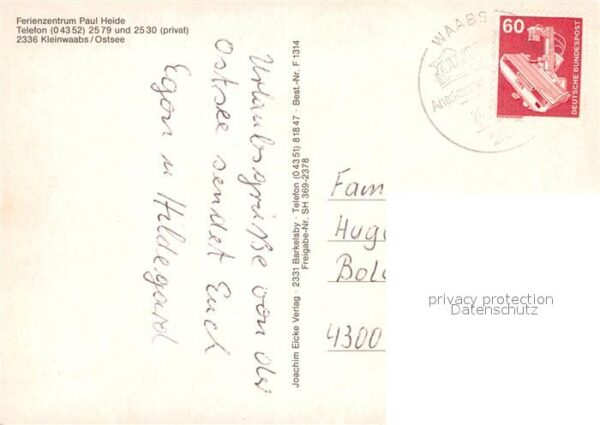 Ferienzentrum Paul Heide
Telefon (0 43 52) 25 79 und 25 30 (privat)
2336 Kleinwaabs/Ostsee
Urlaubsgrüße von der
Ostsee sendet Euch
Egon u Hildegard
Joachim Eicke Verlag · 2331 Barkelsby · Telefon (0 43 51) 818 47 · Best.-Nr. F 1314
Freigabe-Nr. SH 369-2378
WAABS
60
DEUTSCHE BUNDESPOST
Fam
Hug
Bol
4300
privacy protection
Datenschutz